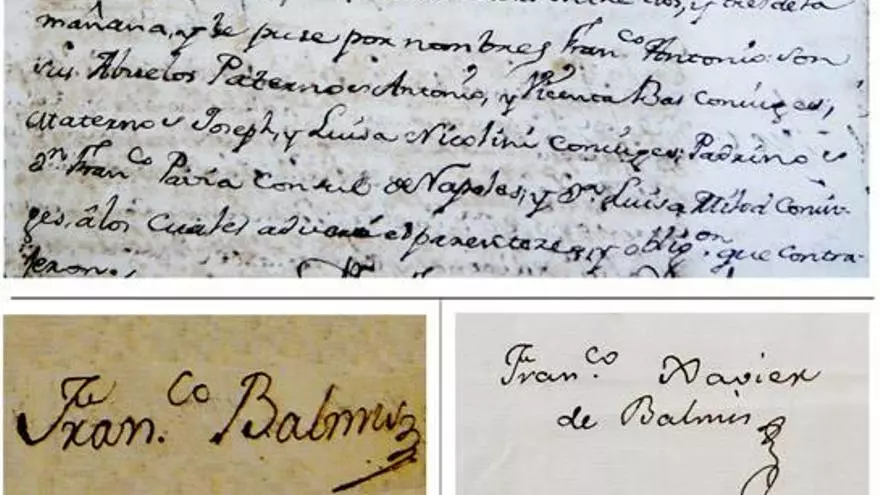 entre dos, y tres de la
mañana, y le puse por nombres Fran.co Antonio: son
sus Abuelos Paternos Antonio, y Vicenta Bas Coniuges,
Maternos Joseph, y Luisa Nicolini Coniuges; Padrinos
Dn. Fran.co Paria Consul de Napoles, y Da. Luisa Milot Coniu-
ges, â los cuales adverti el parentezco, y oblig.on que contra-
jeron.
Fran.co Balmis
Fran.co Xavier
de Balmis